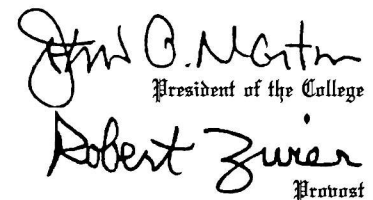 John O. Martin
President of the College
Robert Zurer
Provost